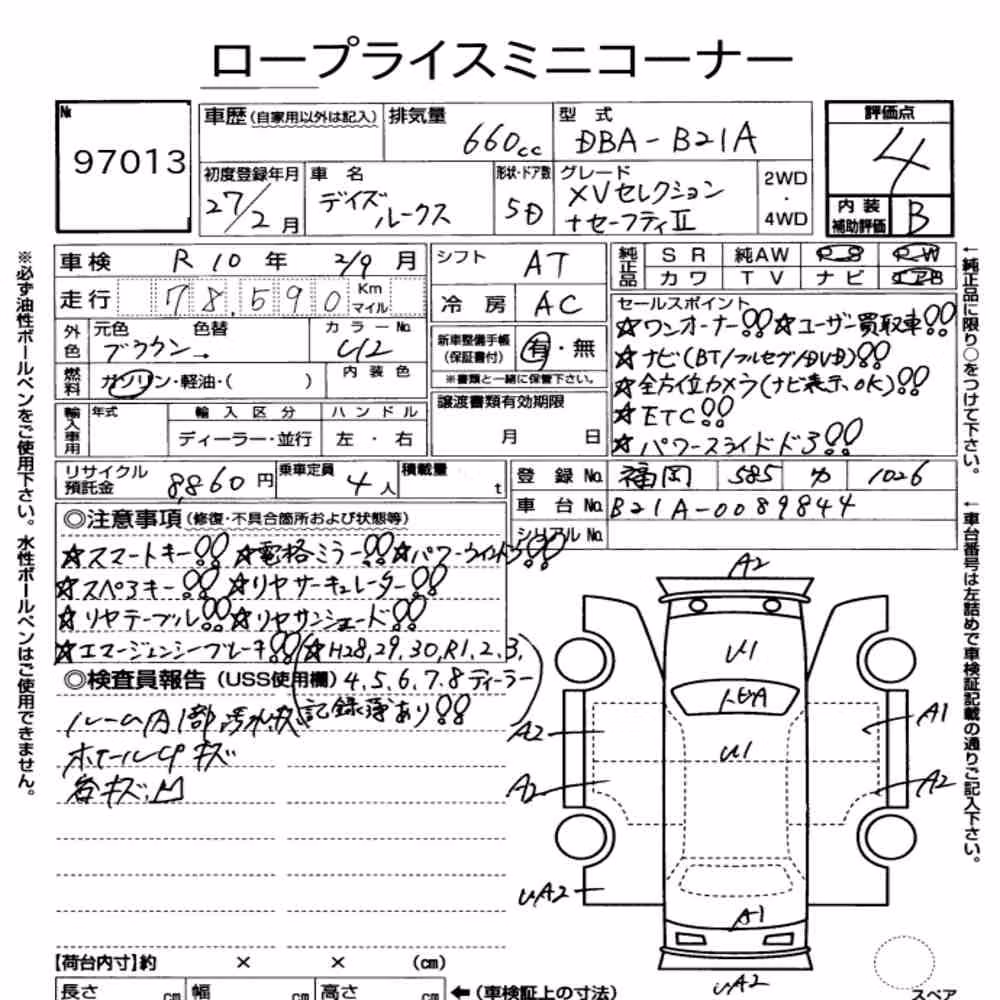 ロープライスミニコーナー
№
97013
車歴 (自家用以外は記入)
排気量
660cc
型式
DBA-B21A
評価点
4
初度登録年月
27/2月
車名
デイズルークス
形状・ドア数
5D
グレード
XVセレクション
+セーフティII
2WD
・
4WD
内装
補助評価
B
車検 R10年 2/9月
走行 78,590 Km マイル
外色
元色 色替
ブラウン→
カラーNo.
U12
燃料
ガソリン・軽油・( )
内装色
輸入車用
年式
輸入区分
ディーラー・並行
ハンドル
左・右
シフト
AT
冷房
AC
新車整備手帳
(保証書付)
有・無
※書類と一緒に保管下さい。
譲渡書類有効期限
月 日
純正品
SR 純AW PS PW
カワ TV ナビ エアB
セールスポイント
☆ワンオーナー!! ☆ユーザー買取車!!
☆ナビ(BT/フルセグ/DVD)!!
☆全方位カメラ(ナビ表示、OK)!!
☆ETC!!
☆パワースライドドア!!
リサイクル
預託金
8,860円
乗車定員
4人
積載量
t
登録No. 福岡 585 カ 1026
車台No. B21A-0089844
シリアルNo.
◎注意事項 (修復・不具合箇所および状態等)
☆スマートキー!! ☆電格ミラー!! ☆パワーウィンドウ!!
☆スペアキー!! ☆リヤサーキュレーター!!
☆リヤテーブル!! ☆リヤサンシェード!!
☆エマージェンシーブレーキ!! (☆H28,29,30,R1,2,3,
4,5,6,7,8ディーラー
記録簿あり!!)
◎検査員報告 (USS使用欄)
ルーム内1部汚れ
ホイールCPキズ
各キズ、凹
A2
U1
トビA
U1
A2
A2
A1
A2
UA2
A1
UA2
スペア
【荷台内寸】約 × × (cm)
長さ cm 幅 cm 高さ cm
←(車検証上の寸法)
※必ず油性ボールペンをご使用下さい。水性ボールペンはご使用できません。
←純正品に限り○をつけて下さい。
←車台番号は左詰めで車検証記載の通りご記入下さい。